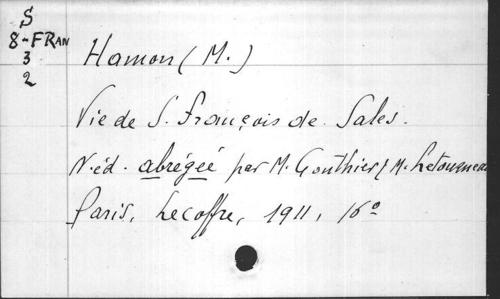 S
8-FRAN
3
2
Hamon (M.)
Vie de S. François de Sales.
N. éd. abrégée par M. Gonthier & M. Letourneau
Paris, Lecoffre, 1911, 16º